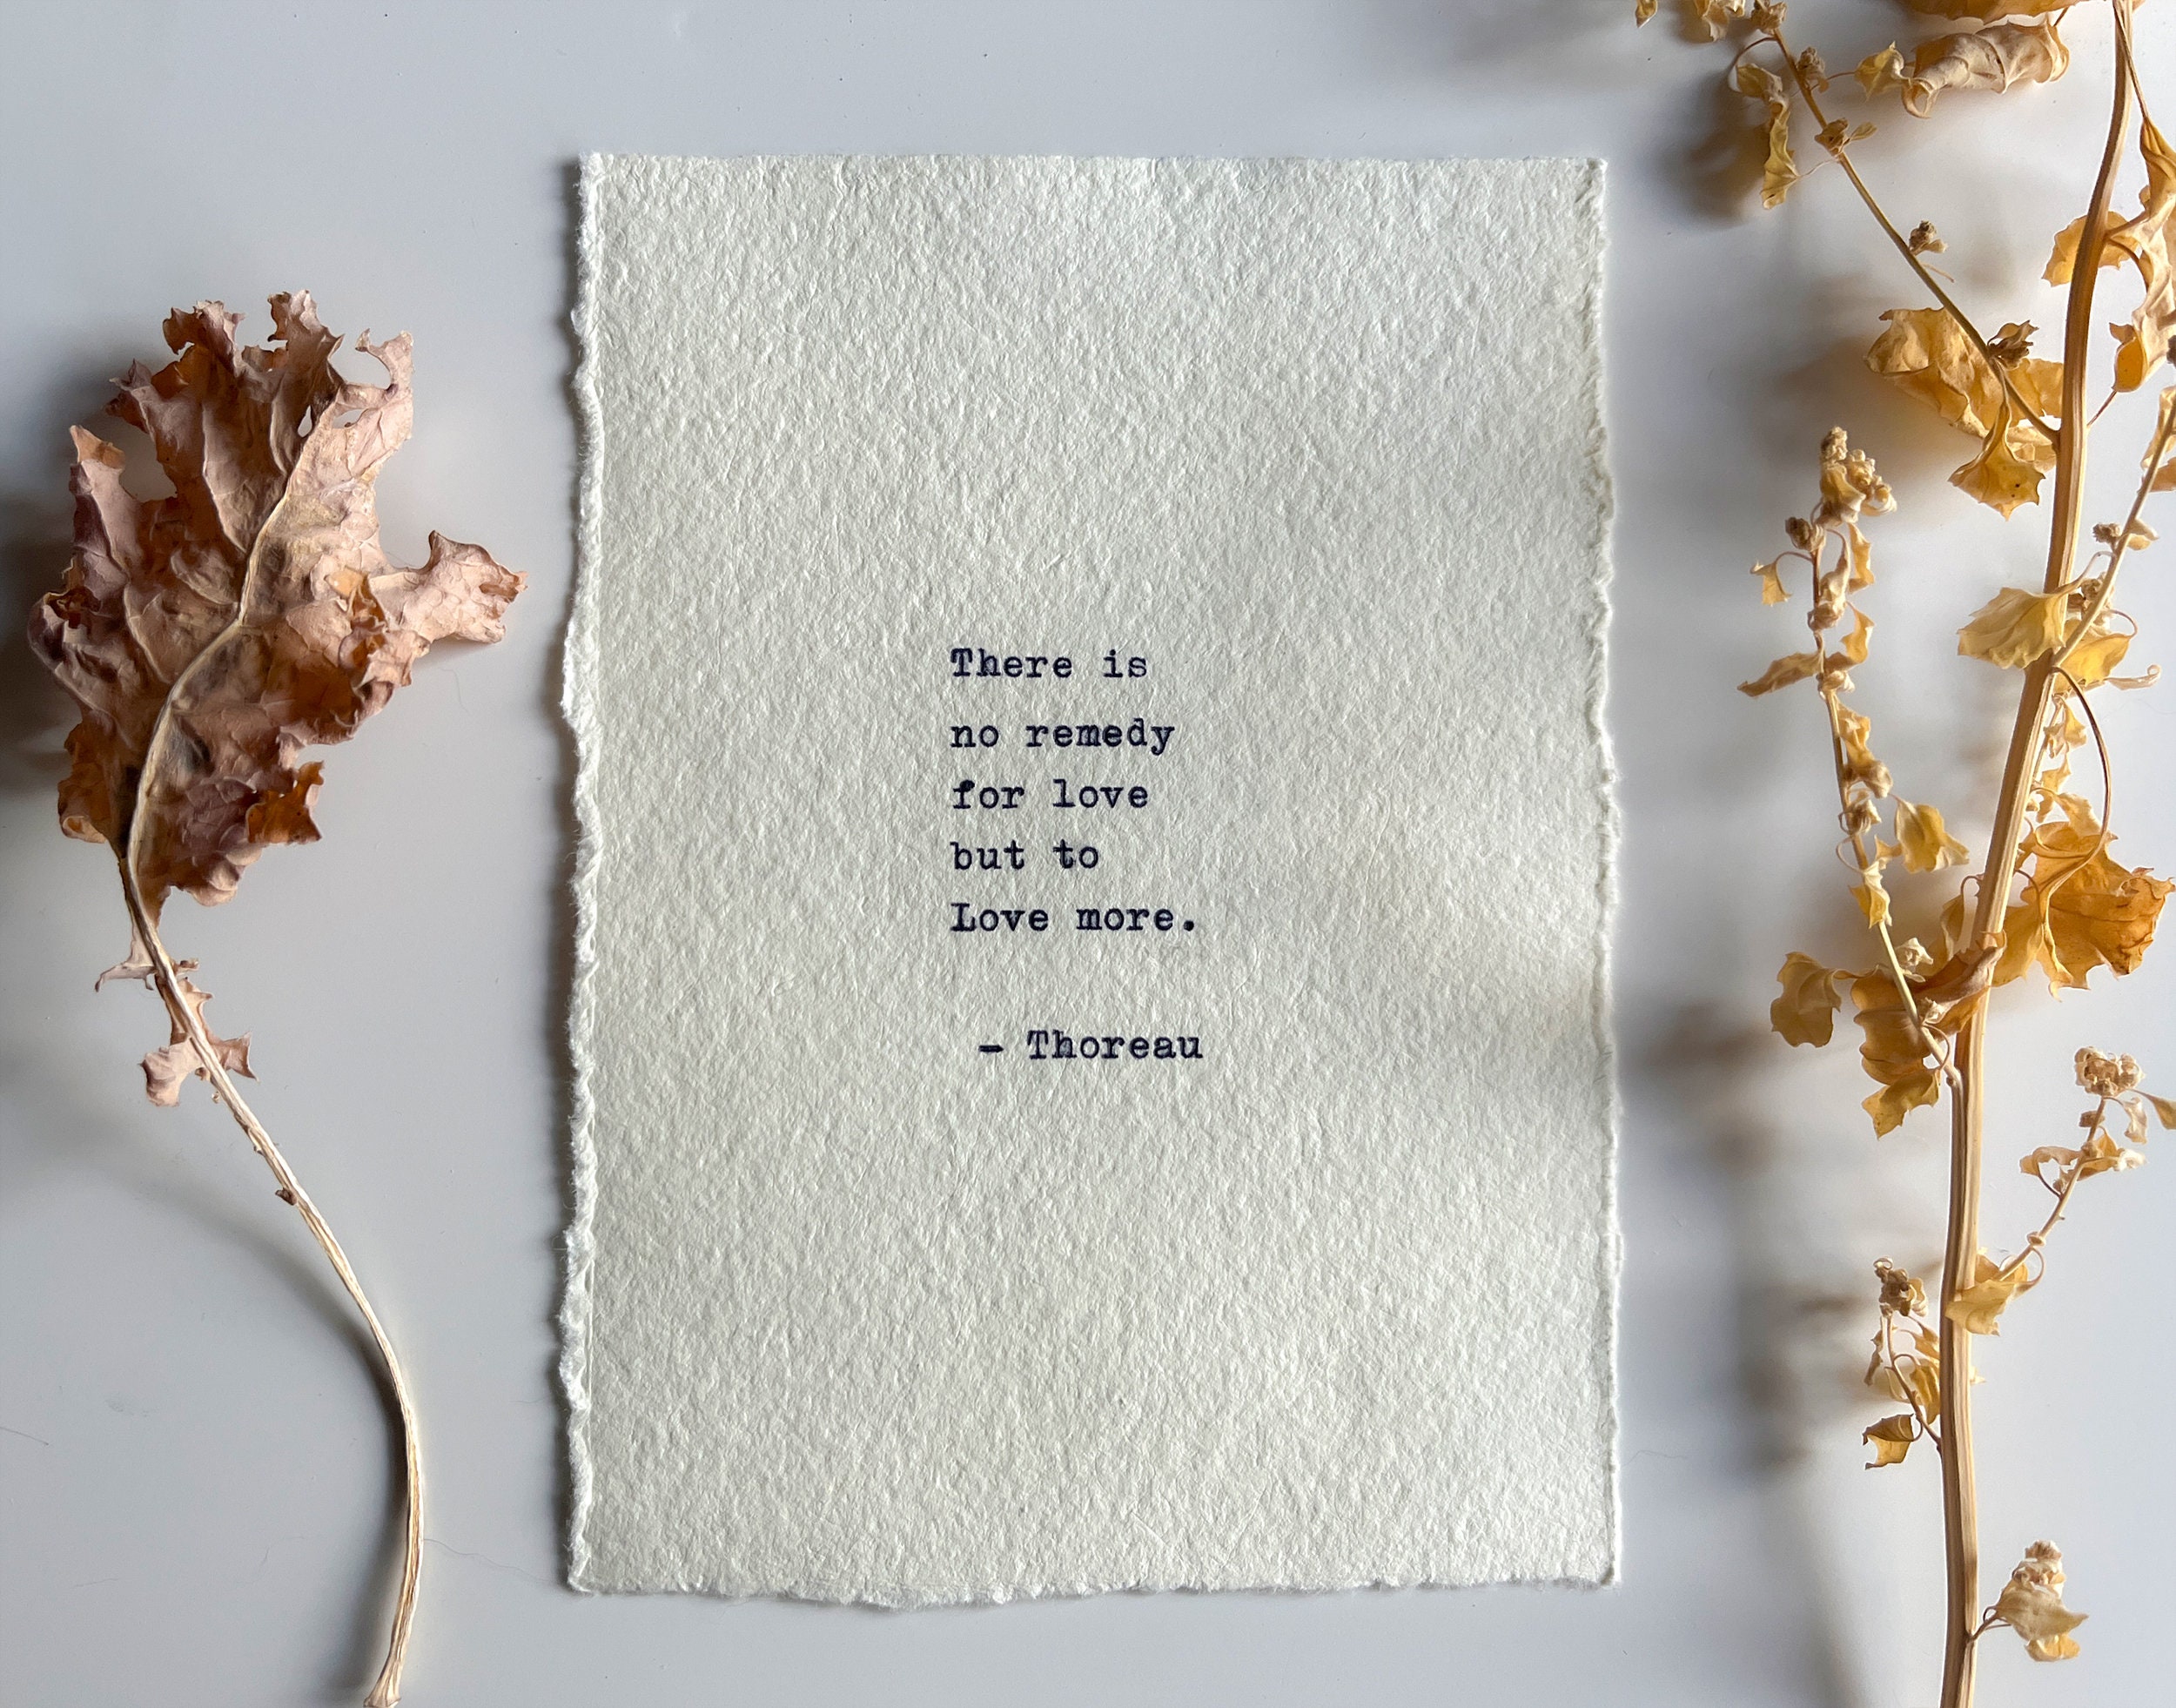 There is
no remedy
for love
but to
Love more.
- Thoreau